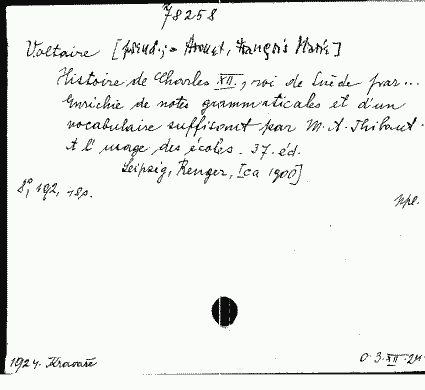 78258
Voltaire [pseud.;= Arouet, François Marie]
Histoire de Charles XII., roi de Suède par...
Enrichie de notes grammaticales et d'un
vocabulaire suffisant par M. A. Thibaut.
A l'usage des écoles. 37. éd.
Leipzig, Renger, [ca 1900]
8°, 192, 48p.
npl.
1924. Kravaře
0.3.XII.24